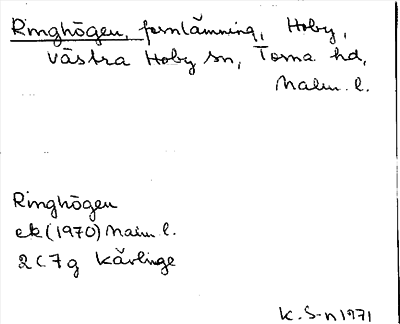 Ringhögen, fornlämning, Hoby,
Västra Hoby sn, Torna hd,
Malm. l.
Ringhögen
ek (1970) Malm l.
2C7g Kävlinge
K. S-n 1971